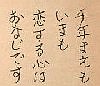 千年まえも
いまも
恋する心は
おなじです